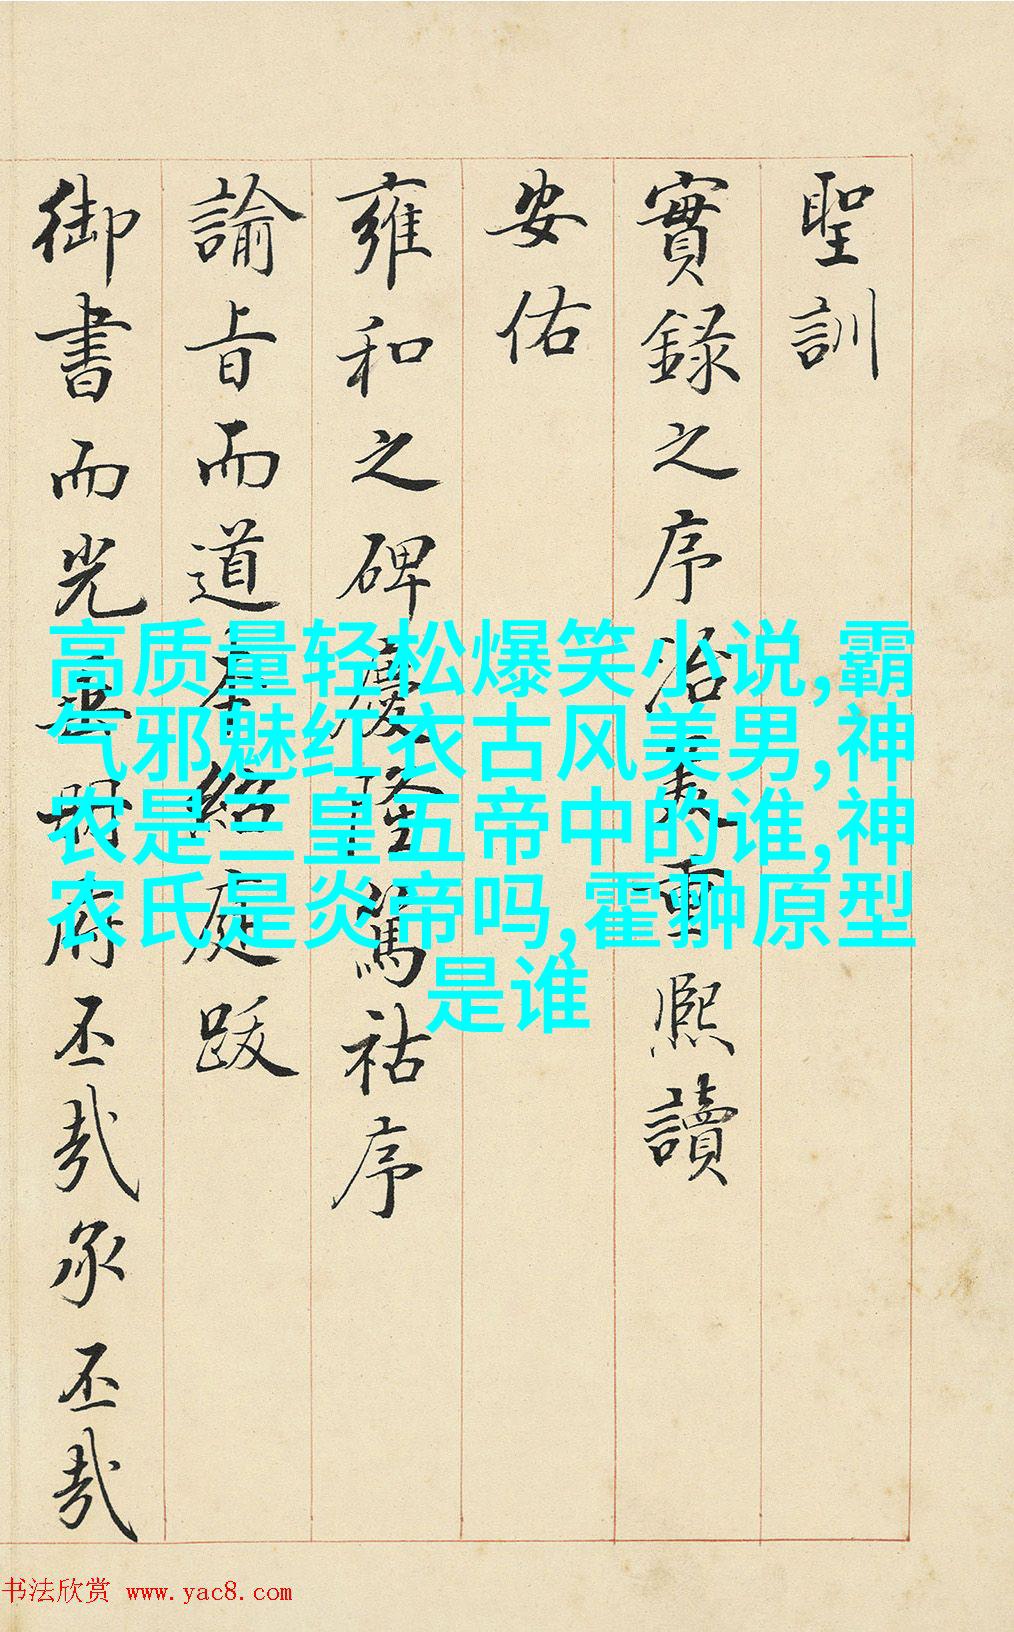 聖訓
實錄之序治表重熙讀
安佑
雍和之碑慶隆篤祜序
諭旨而道奉紹庭跋
御書而光垂冊府丕哉承丕哉
高质量轻松爆笑小说,霸
气邪魅红衣古风美男,神
农是三皇五帝中的谁,神
农氏是炎帝吗,霍翀原型
是谁
书法欣赏 www.yac8.com